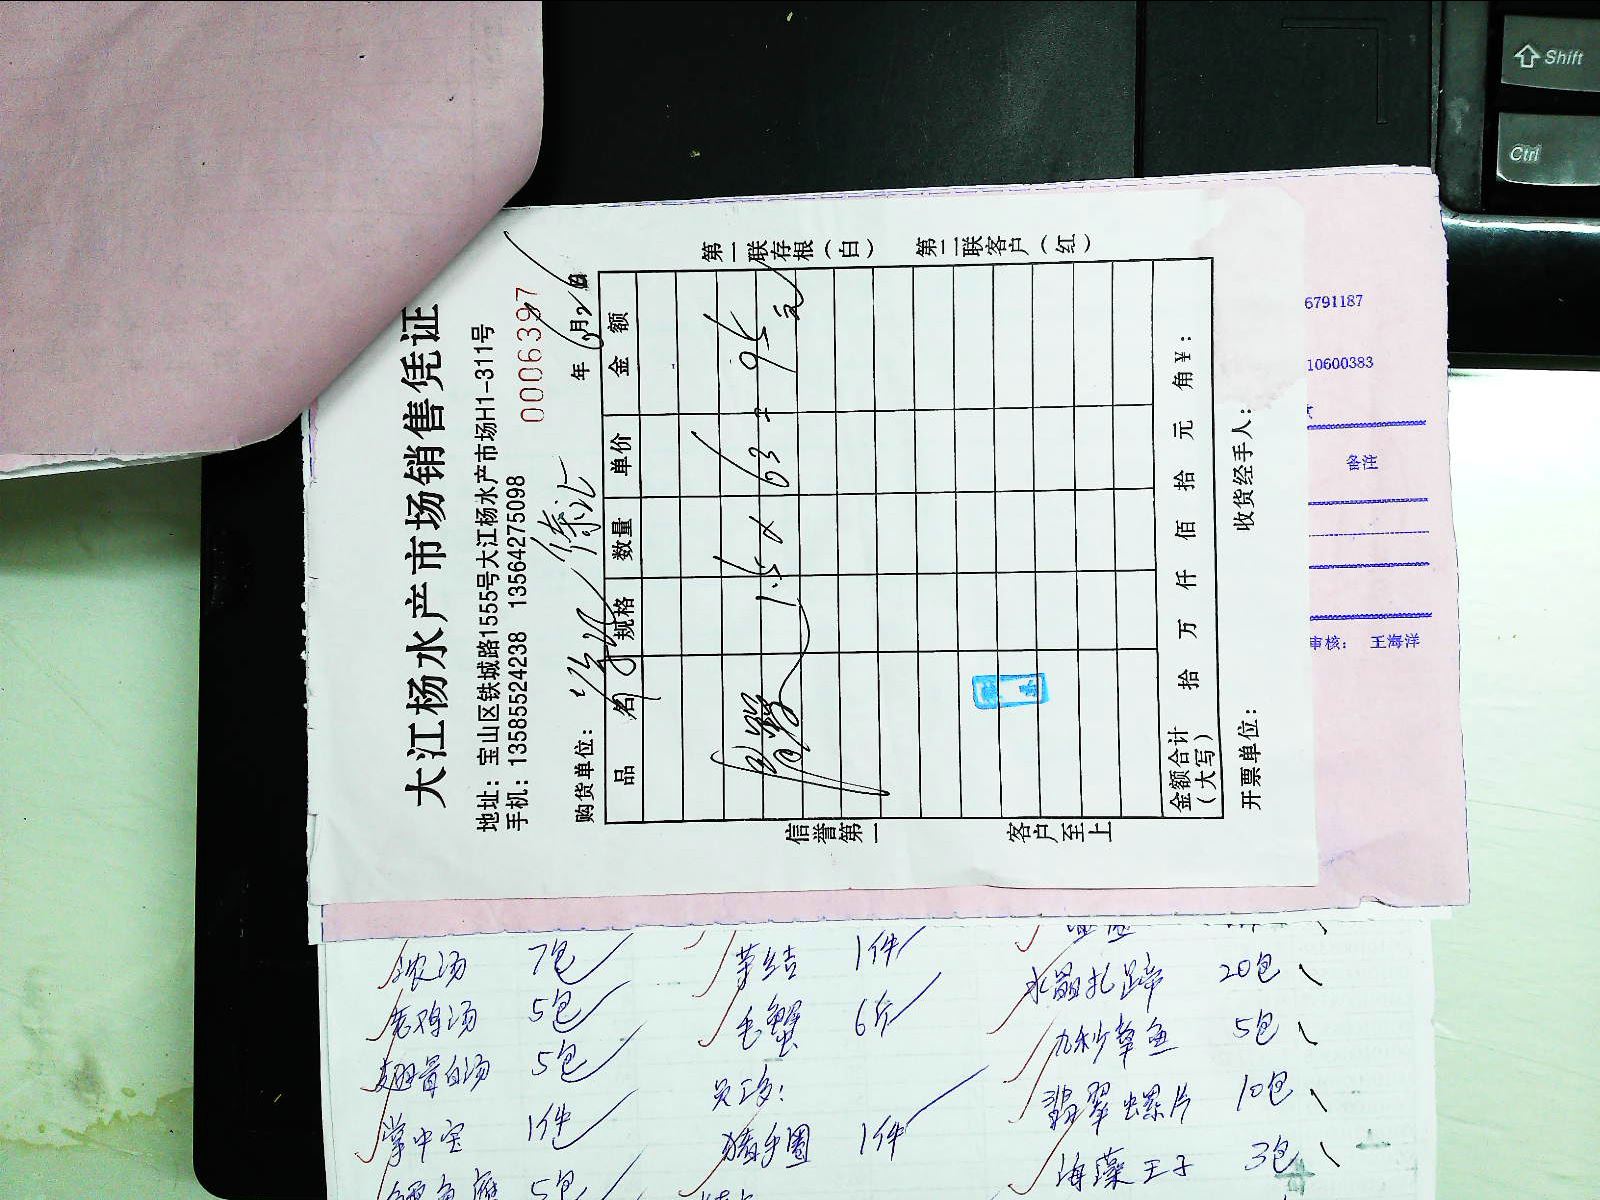 Shift
Ctrl
大江杨水产市场销售凭证
地址：宝山区铁城路1555号大江杨水产市场H1-311号
手机：13585524238 13564275098
0006397
购货单位： 徐汇 年 6月26日
品名 规格 数量 单价 金额
1.5 × 63 = 95元
金额合计（大写） 拾 万 仟 佰 拾 元 角 ¥：
开票单位： 收货经手人：
信誉第一 客户至上
第一联存根（白） 第二联客户（红）
6791187
10600383
备注
审核： 王海洋
浓汤 7包
老鸡汤 5包
翅骨白汤 5包
掌中宝 1件
5包
草结 1件
毛蟹 6斤
员工多：
猪手圈 1件
水晶扎蹄 20包
九秒草鱼 5包
翡翠螺片 10包
海藻王子 3包